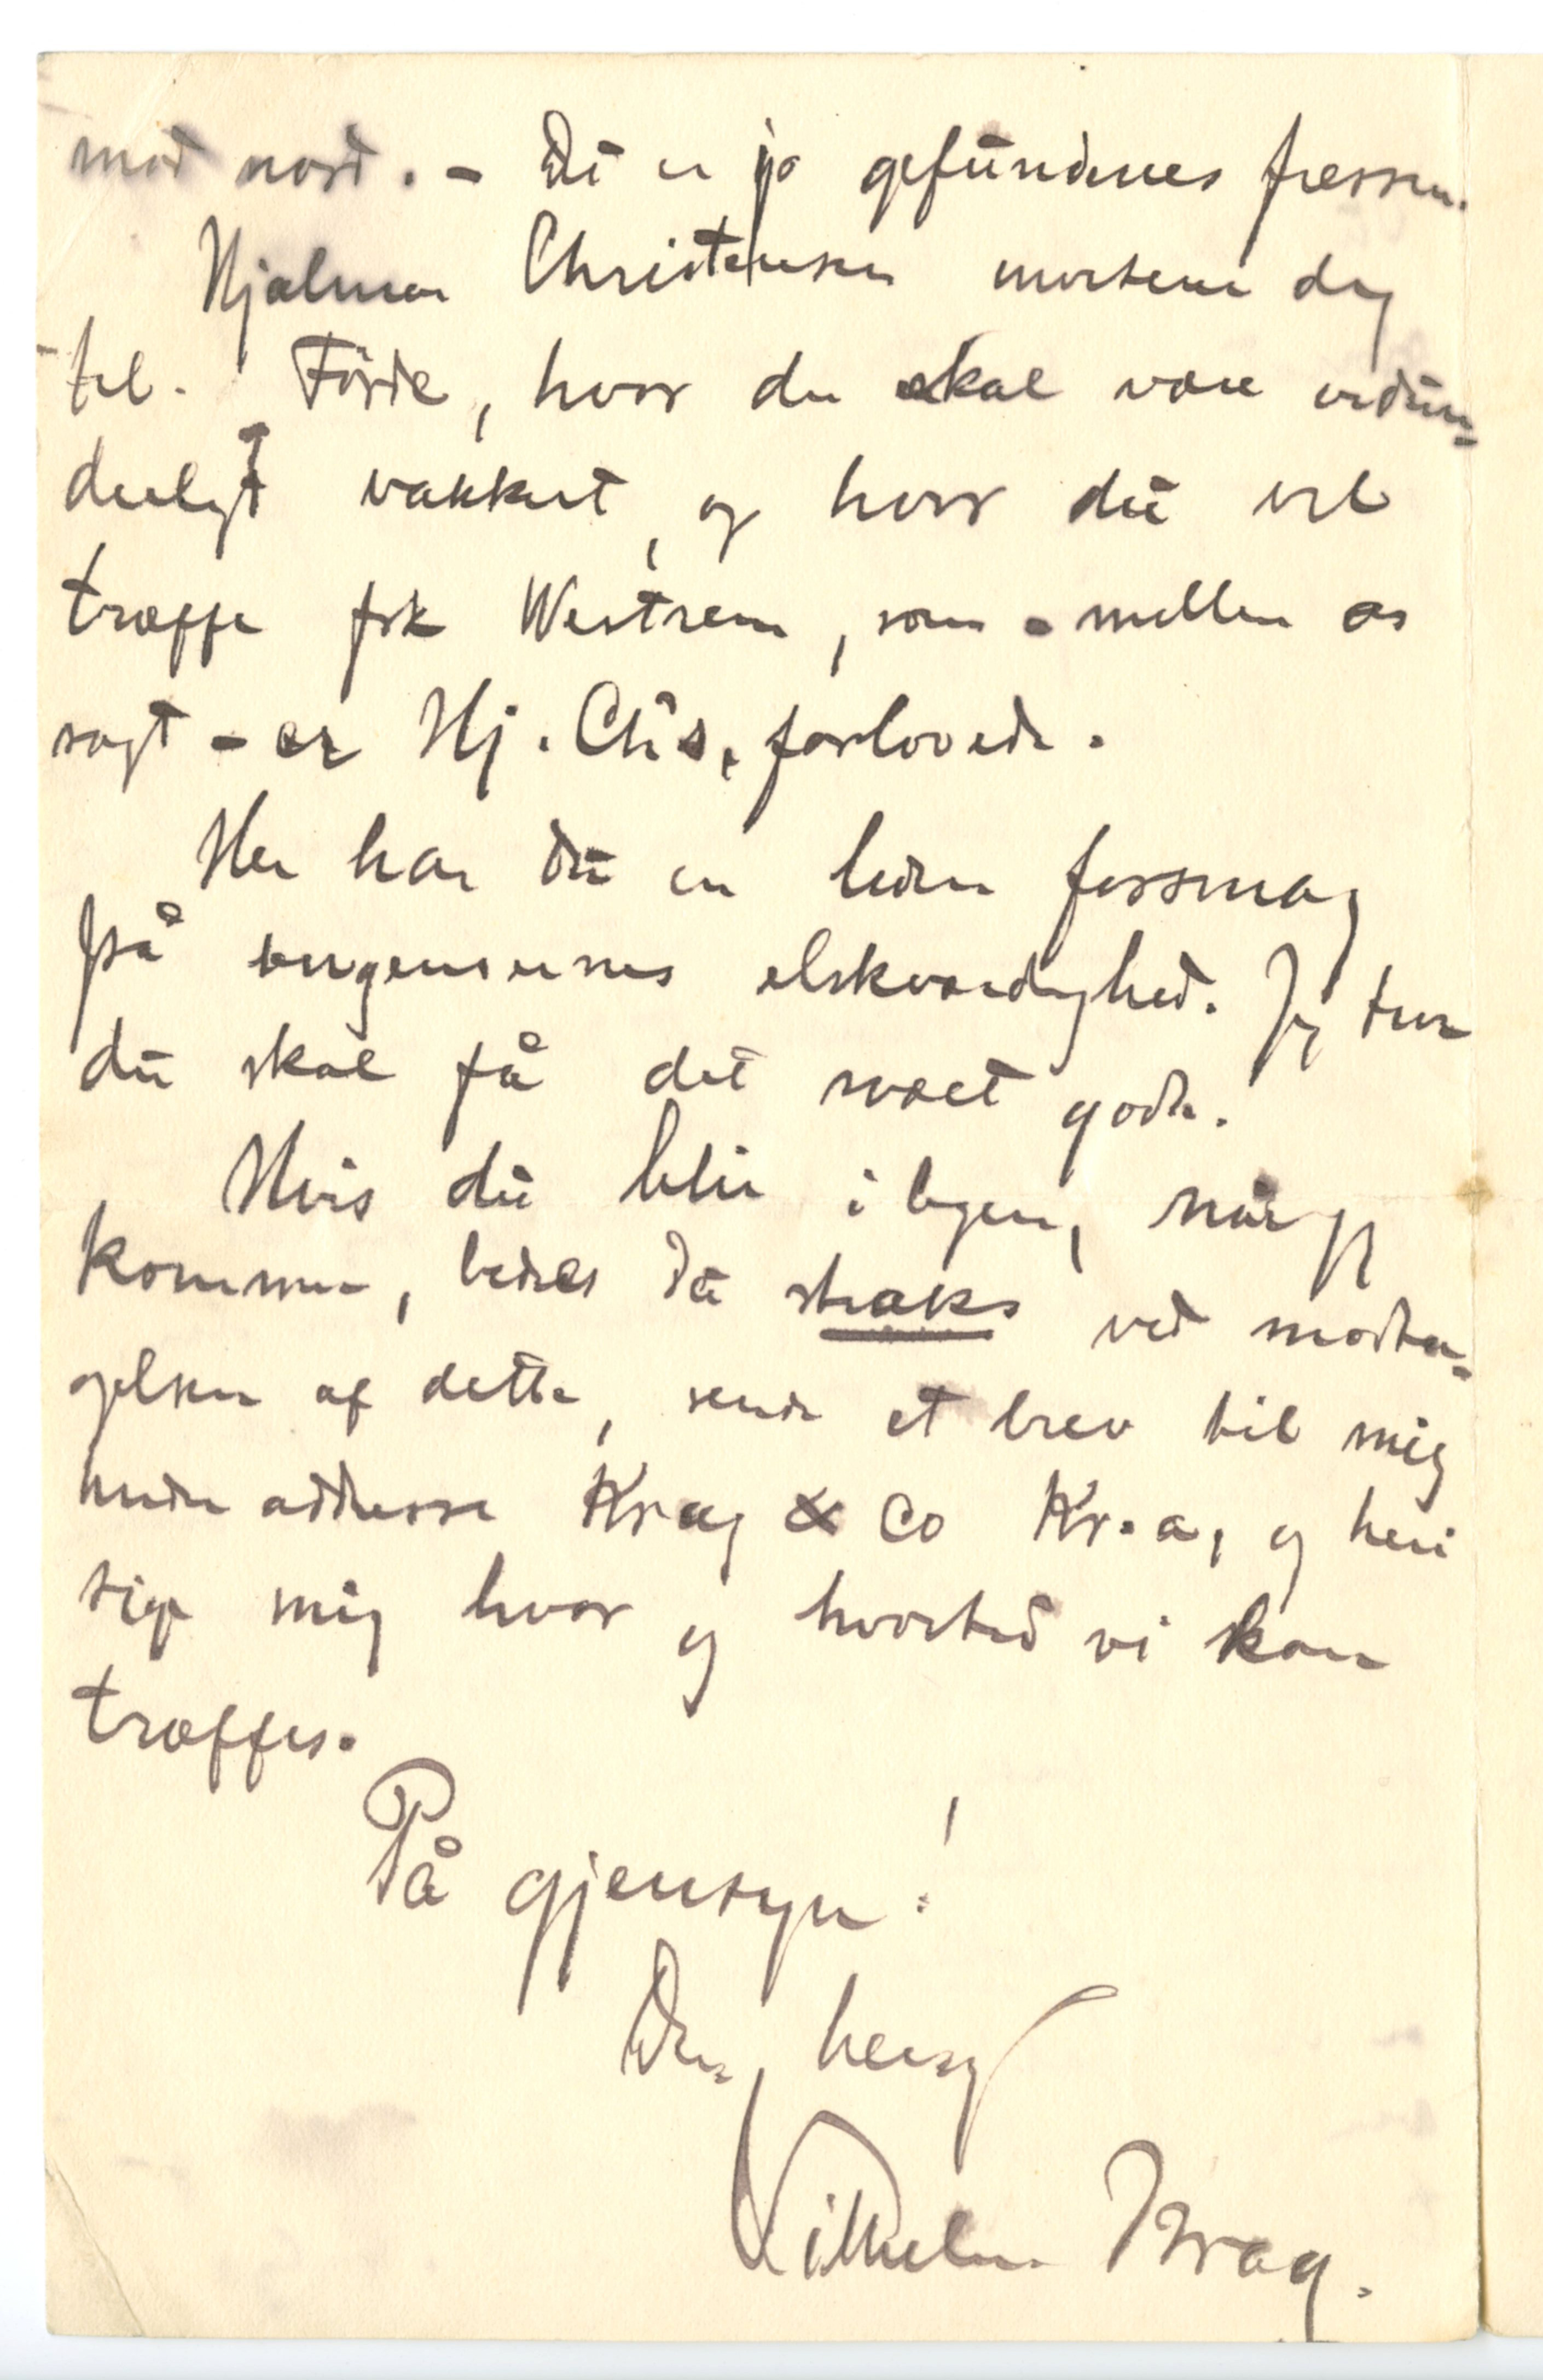 mod nord. - Det er jo gefundenes fressen.
Hjalmar Christensen inviterer dig
til Förde, hvor der skal være vidun=
derligt vakkert, og hvor du vil
træffe frk Westrem, som - mellem os
sagt - er Hj. Chs. forlovede.
Her har du en liden forsmag
på bergensernes elskværdighed. Jeg tror
du skal få det svært godt.
Hvis du blir i byen, når jeg
kommer, bedes du straks ved modta=
gelsen af dette, sende et brev til mig
under addresse Krag & Co Kr.a, og heri
sige mig hvor og hvortid vi kan
træffes.
På gjensyn!
Din heng
Vilhelm Krag.